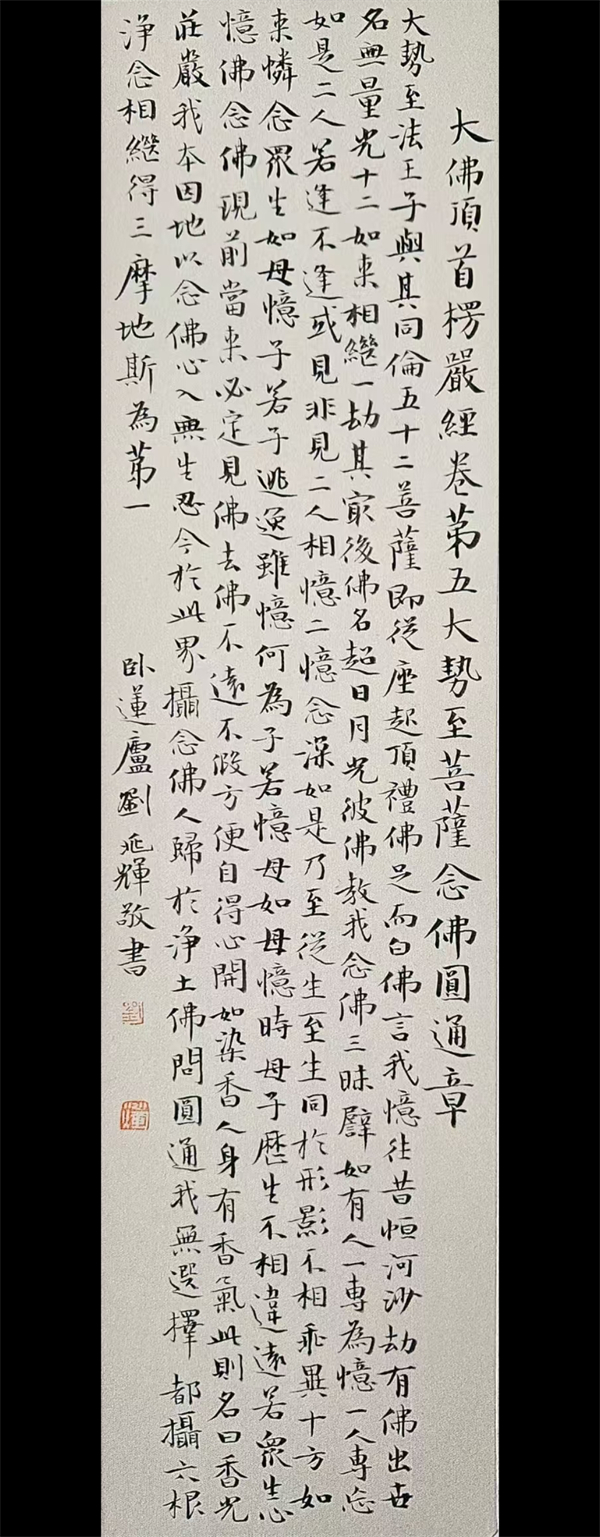 大佛頂首楞嚴經卷第五大勢至菩薩念佛圓通章
大勢至法王子與其同倫五十二菩薩即從座起頂禮佛足而白佛言我憶往昔恒河沙劫有佛出世
名無量光十二如来相繼一劫其最後佛名超日月光彼佛教我念佛三昧譬如有人一專為憶一人專忘
如是二人若逢不逢或見非見二人相憶二憶念深如是乃至從生至生同於形影不相乖異十方如
来憐念眾生如母憶子若子逃逝雖憶何為子若憶母如母憶時母子歷生不相違遠若眾生心
憶佛念佛現前當来必定見佛去佛不遠不假方便自得心開如染香人身有香氣此則名曰香光
莊嚴我本因地以念佛心入無生忍今於此界攝念佛人歸於淨土佛問圓通我無選擇都攝六根
淨念相繼得三摩地斯為第一
卧蓮廬劉延輝敬書
劉